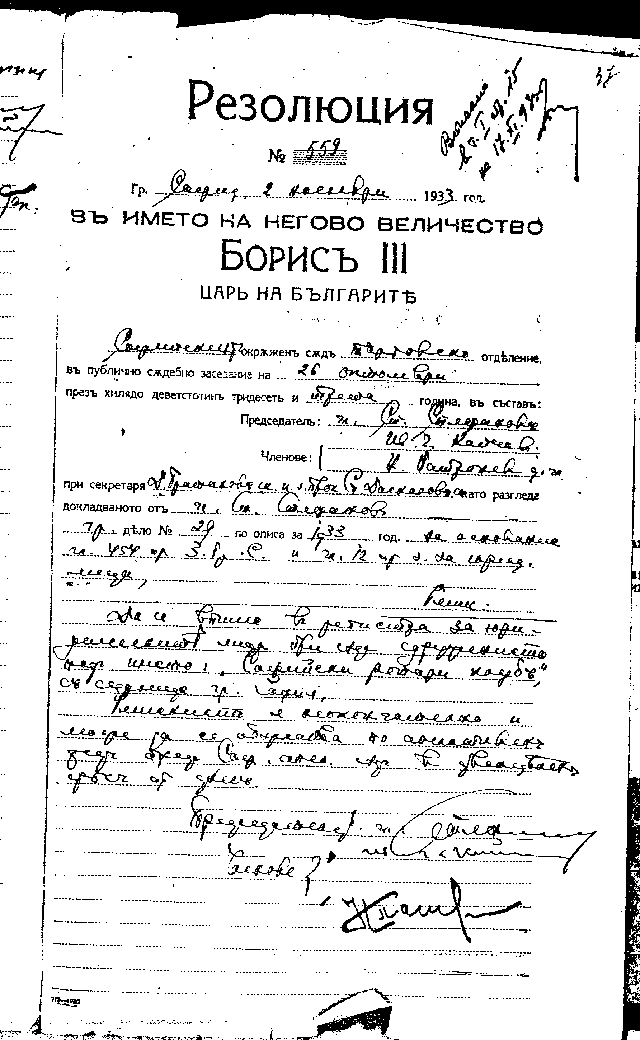 37
Вписано
в т. I
на 17.XI.933
Резолюция
№ 559
Гр. София, 2 ноември 1933 год.
ВЪ ИМЕТО НА НЕГОВО ВЕЛИЧЕСТВО
БОРИСЪ III
ЦАРЬ НА БЪЛГАРИТѢ
Софийскиятъ окрѫженъ сѫдъ търговско отдѣление,
въ публично сѫдебно заседание на 26 октомври
презъ хилядо деветстотинъ тридесеть и трета година, въ съставъ:
Председатель: п. Ст. Стефановъ
Членове:
при секретаря и като разгледа
докладваното отъ п. Ст. Стефановъ
гр. дѣло № 29 по описа за 1933 год. на основание
чл. 454 отъ и чл. 12 отъ з. за юрид.
лица,
Реши:
Да се впише в регистра за юри-
дическитѣ лица при сѫда сдружението
под името: „Софийски ротари клубъ“,
съ седалище гр. София.
Решението е неокончателно и
може да се обжалва по апелативенъ
редъ пред Соф. апел. сѫд в двеседмиченъ
срокъ от днесъ.
Председатель: п.
Членове: